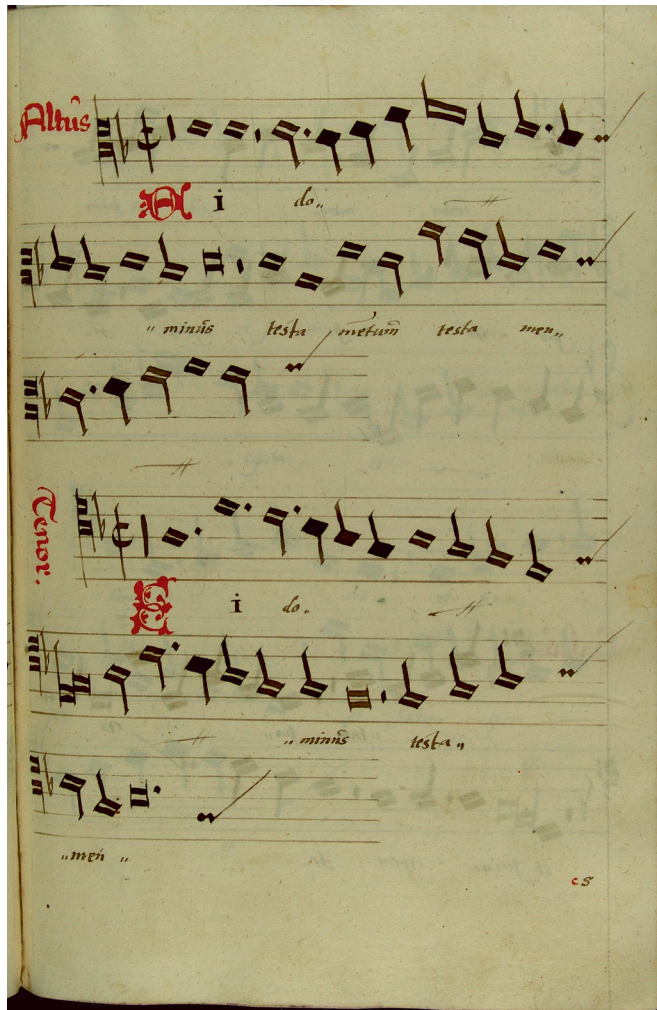 Altus
D i do„
„ minus testa metum testa men„
Tenor.
S i do„
„ minus testa „
„ men „
cs